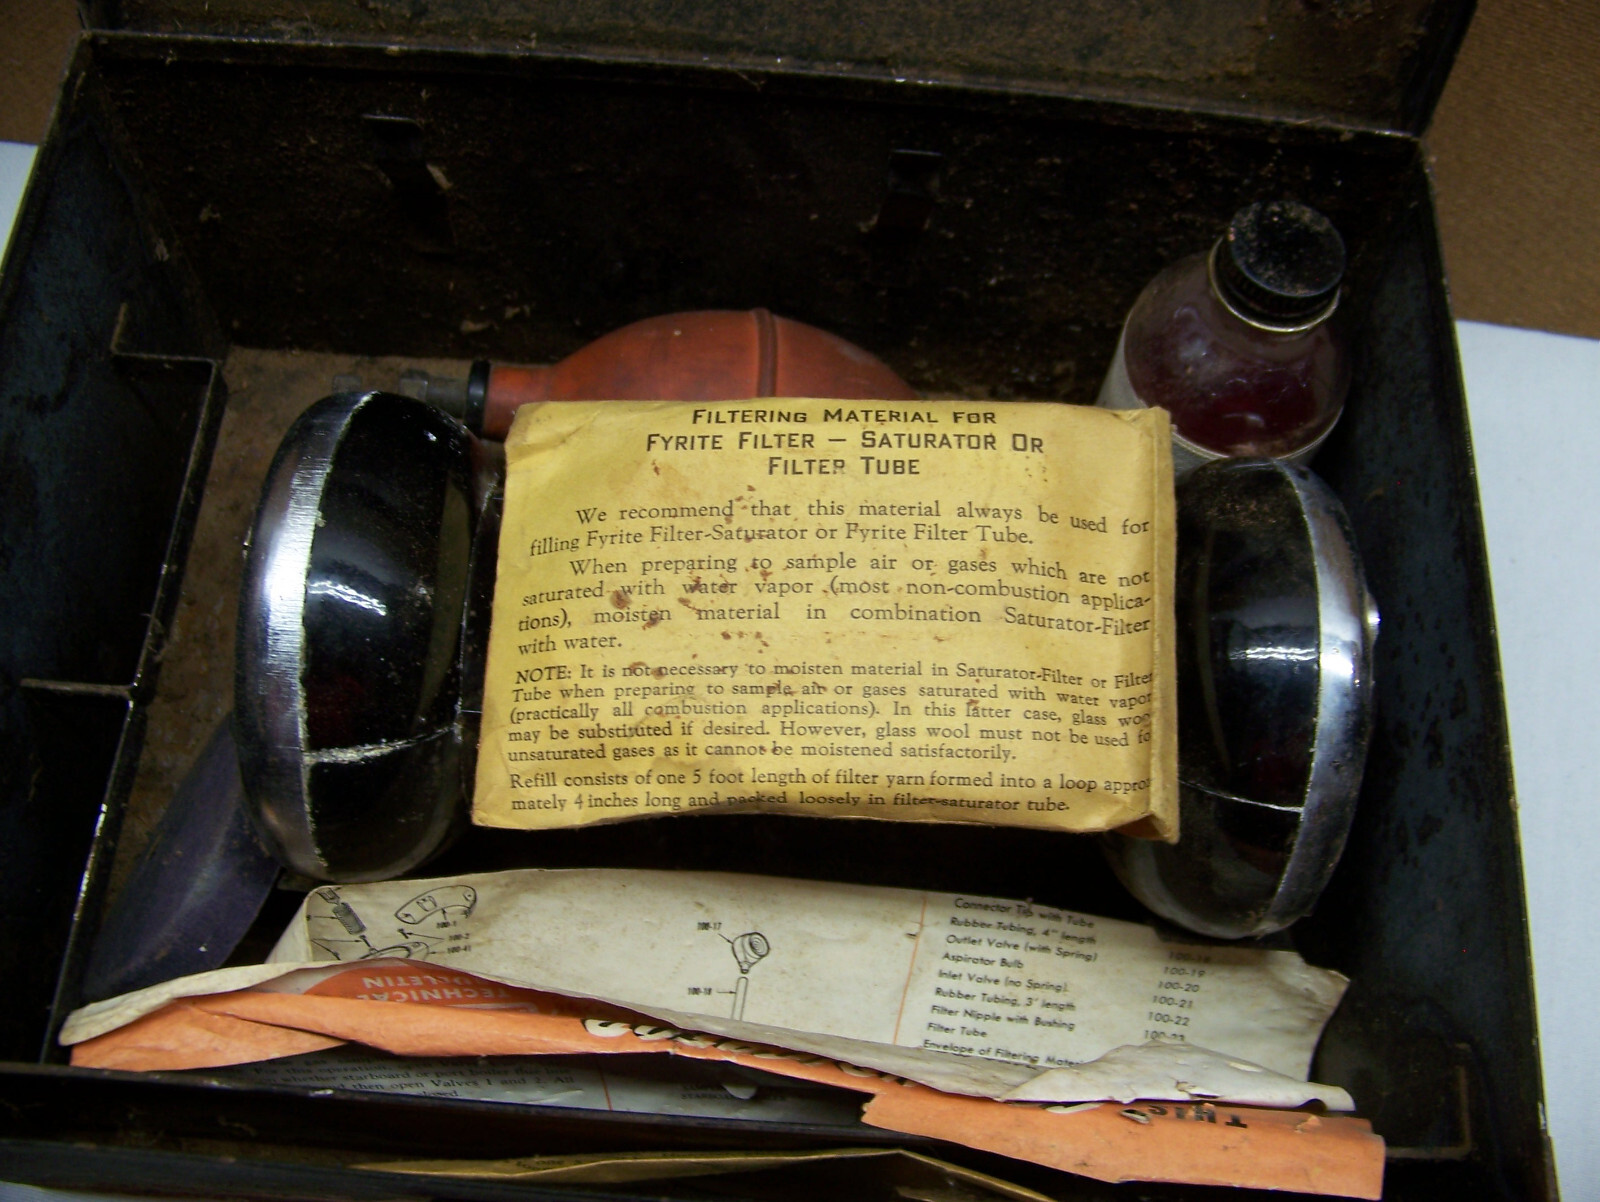 FILTERING MATERIAL FOR
FYRITE FILTER — SATURATOR OR
FILTER TUBE
We recommend that this material always be used for
filling Fyrite Filter-Saturator or Fyrite Filter Tube.
When preparing to sample air or gases which are not
saturated with water vapor (most non-combustion applica-
tions), moisten material in combination Saturator-Filter
with water.
NOTE: It is not necessary to moisten material in Saturator-Filter or Filter
Tube when preparing to sample air or gases saturated with water vapor
(practically all combustion applications). In this latter case, glass woo
may be substituted if desired. However, glass wool must not be used fo
unsaturated gases as it cannot be moistened satisfactorily.
Refill consists of one 5 foot length of filter yarn formed into a loop approx
mately 4 inches long and packed loosely in filter-saturator tube.
100-1
100-2
100-41
100-17
100-18
Connector Tip with Tube
Rubber Tubing, 4" length 100-18
Outlet Valve (with Spring) 100-19
Aspirator Bulb 100-20
Inlet Valve (no Spring) 100-21
Rubber Tubing, 3' length 100-22
Filter Nipple with Bushing 100-23
Filter Tube
Envelope of Filtering Mater
TECHNICAL
BULLETIN
For this operation
whether starboard or port boiler flue
then open Valves 1 and 2. All
closed
THIS